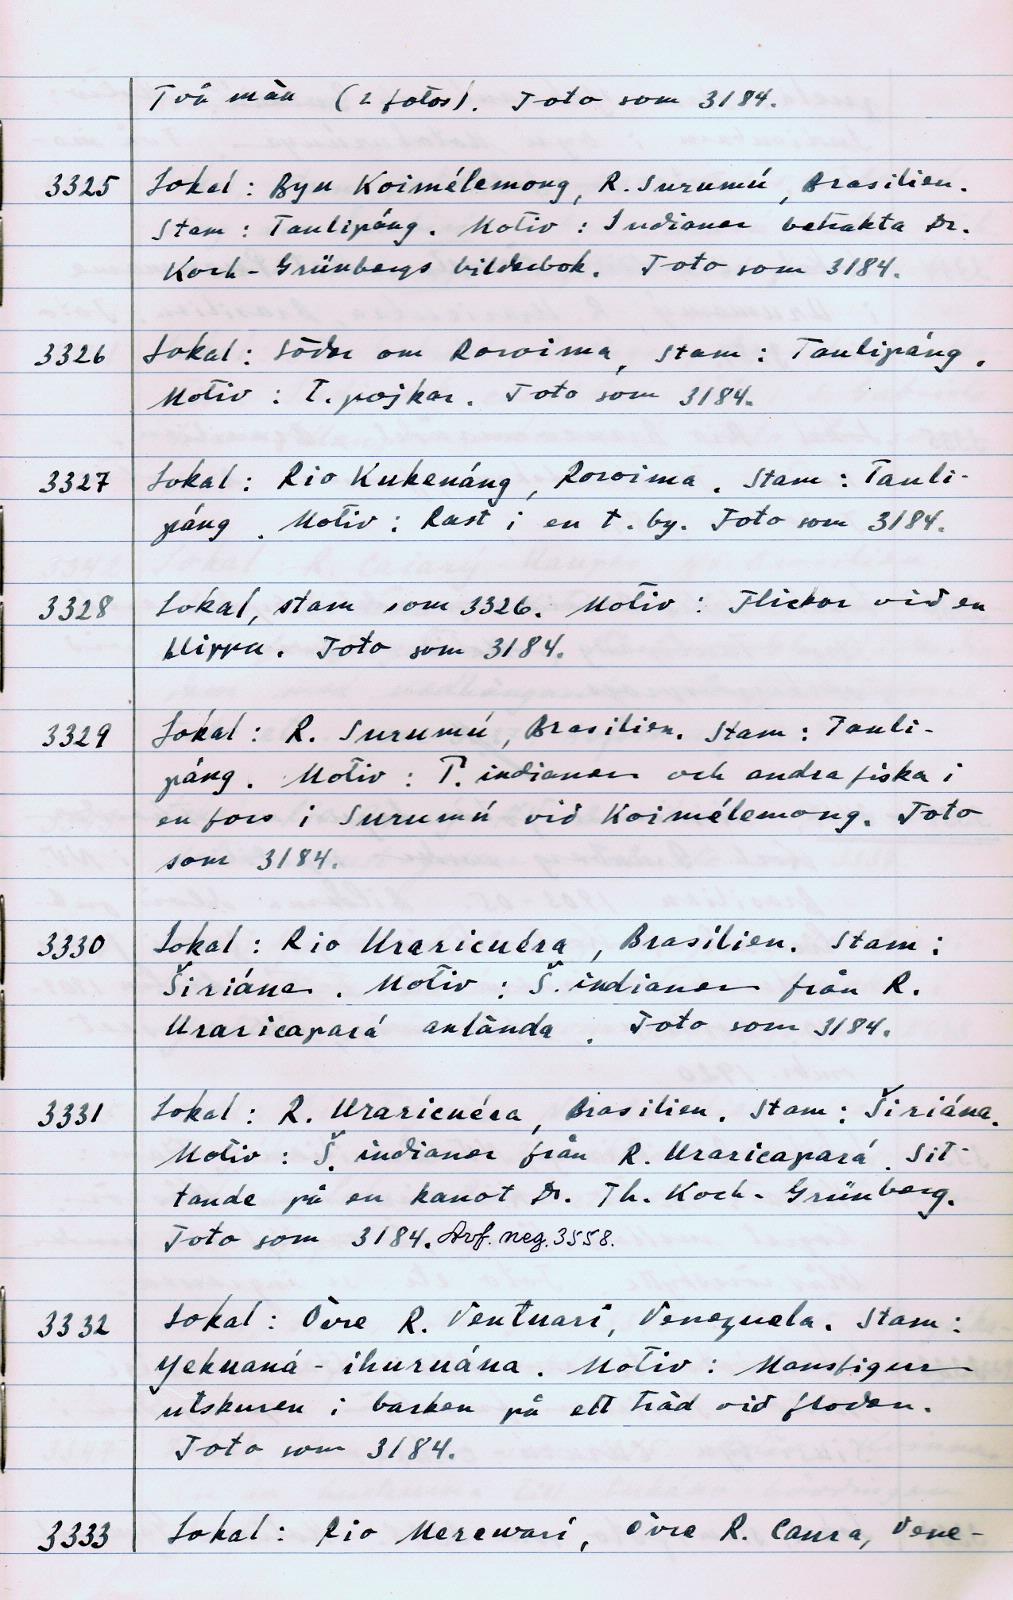 Två män (2 fotos). Foto som 3184.
3325 Lokal: Byn Koimélemong, R. Surumú, Brasilien.
Stam: Taulipáng. Motiv: Indianer betrakta Dr.
Koch-Grünbergs bilderbok. Foto som 3184.
3326 Lokal: Söder om Roroima, Stam: Taulipáng.
Motiv: T. pojkar. Foto som 3184.
3327 Lokal: Rio Kukenáng, Roroima. Stam: Tauli-
páng. Motiv: Rast i en t. by. Foto som 3184.
3328 Lokal, stam som 3326. Motiv: Flickor vid en
klippa. Foto som 3184.
3329 Lokal: R. Surumú, Brasilien. Stam: Tauli-
páng. Motiv: T. indianer och andra fiska i
en fors i Surumú vid Koimélemong. Foto
som 3184.
3330 Lokal: Rio Uraricuéra, Brasilien. Stam:
Širiána. Motiv: Š. indianer från R.
Uraricapará anlända. Foto som 3184.
3331 Lokal: R. Uraricuéra, Brasilien. Stam: Širiána.
Motiv: Š. indianer från R. Uraricapará. Sit-
tande på en kanot Dr. Th. Koch-Grünberg.
Foto som 3184. Avf. neg. 3558.
3332 Lokal: Övre R. Ventuari, Venezuela. Stam:
Yekuaná-ihuruána. Motiv: Mansfigur
utskuren i barken på ett träd vid floden.
Foto som 3184.
3333 Lokal: Rio Merewari, Övre R. Caura, Vene-